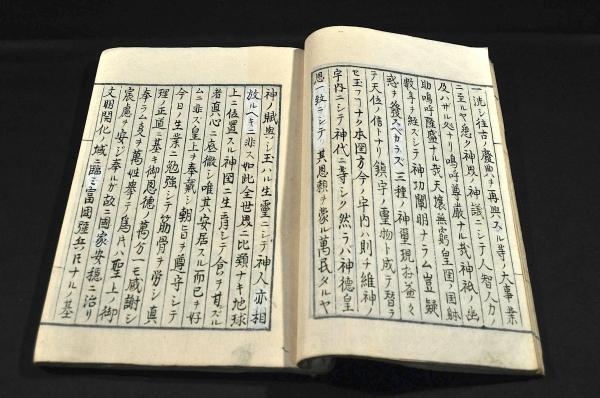 一洗シ往古ノ盛典ヲ再興スル等ノ大事業
ニ至ルヤ悉ク神慮ノ神議ニシテ人智人力ノ
及ハサル処ナリ嗚呼尊嚴ナル哉神祇ノ幽
助嗚呼隆盛ナル哉天壤無窮皇国ノ国躰
數年ヲ經ズシテ神功闡明ナラム豈疑
惑ヲ後スベカラズ三種ノ神璽現存益々
天位ノ信トナリ鎮守ノ靈物ト成テ替ラ
セ玉フコナク本国方今ノ宇内ハ則チ維神ノ
宇内ニシテ神代ニ等シク然ラハ神德皇
恩一致ニシテ其恩頼ヲ蒙ル萬民タルヤ
神ノ賦與シ玉ハル生靈ニシテ神人亦相
放ルヘキニ非ス如此全世界ニ比類ナキ地球
上ニ位置スル神国ニ生育シテ
者真心ニ底徹シ唯其安居スル而已ヲ好
ムニ非ス皇上ヲ奉戴シ朝旨ヲ尊守シテ
今日ノ生業ニ勉強シテ筋骨ヲ労シ真
理ノ正道ニ基キ御恩德ノ萬分一モ感謝シ
奉ラム夏ヲ萬姓擧テ爲片ハ聖上ノ御
宸慮ヲ安ジ奉ルガ故ニ國家安穏ニ治リ
文明開化ノ域ニ臨ミ富国強兵 ナルノ基